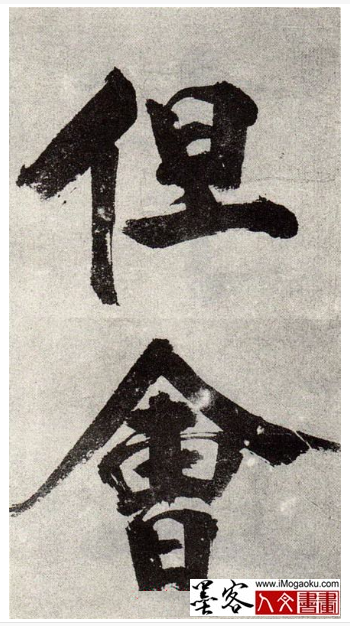 但
會
墨客
www.iMogaoku.com
人文書畫